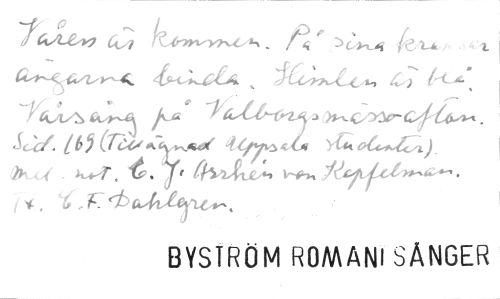 Våren är kommen. På sina kransar
ängarna binda. Himlen är blå.
Vårsång på Valborgsmässoafton.
Sid. 169 (Tillägnad Uppsala studenter).
med not. C. J. Arrhén von Kapfelman.
Tx. C. F. Dahlgren.
BYSTRÖM ROMANI SÅNGER